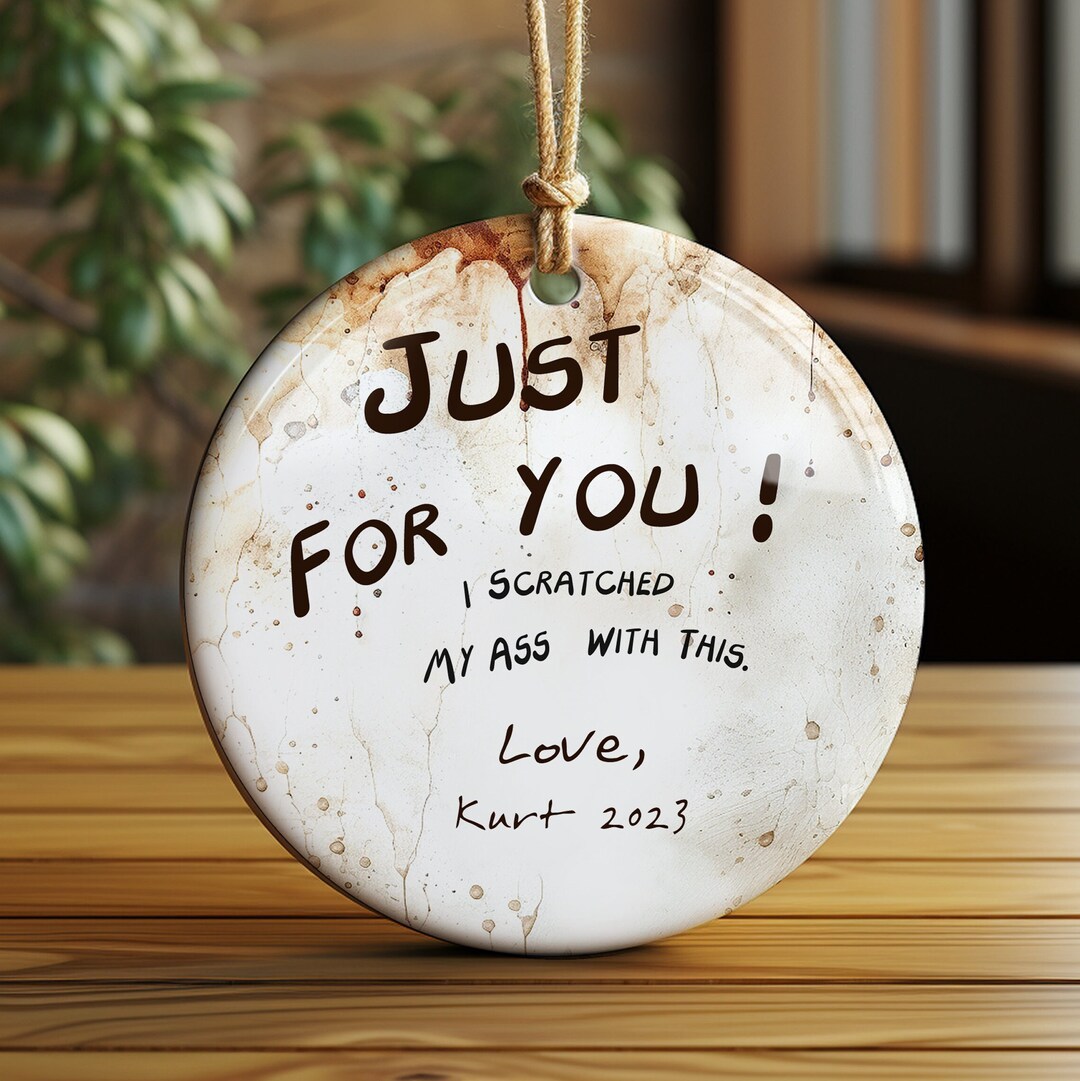 JUST
FOR YOU!
I SCRATCHED
MY ASS WITH THIS.
Love,
Kurt 2023